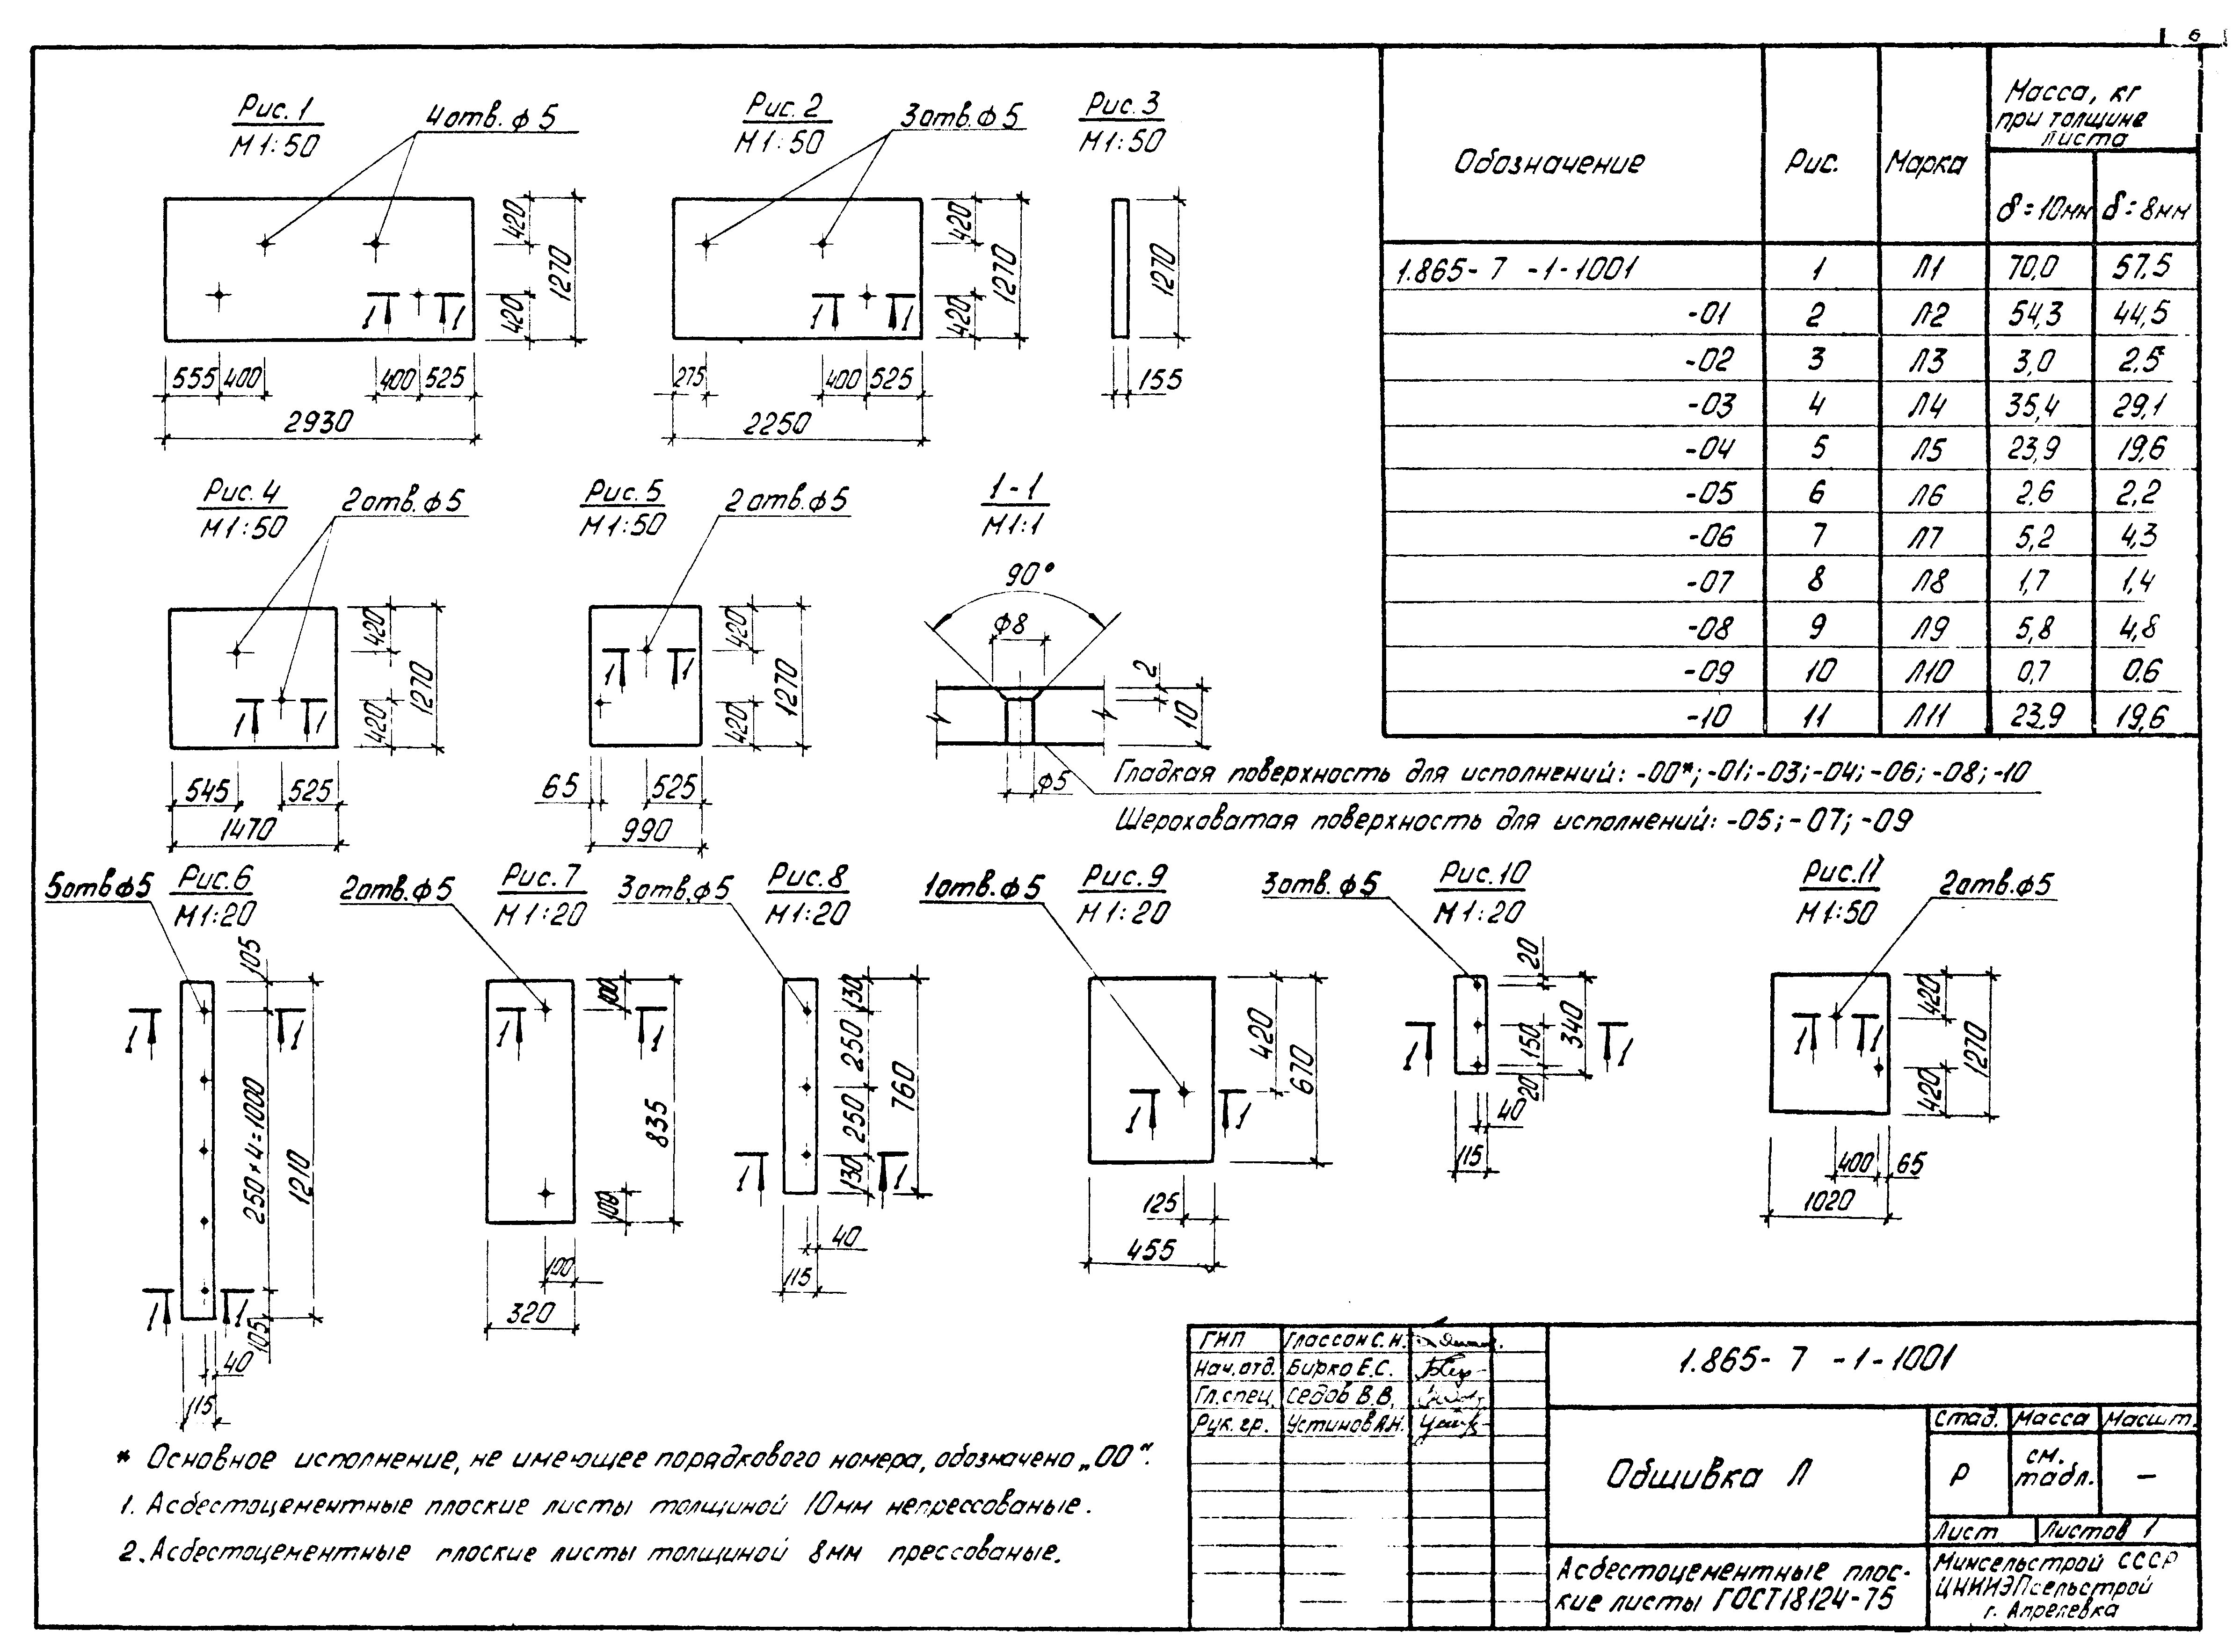 6
Рис. 1
М 1:50
4 отв. ф 5
420
1270
420
1 1
555 400 400 525
2930
Рис. 2
М 1:50
3 отв. ф 5
420
1270
420
1 1
275 400 525
2250
Рис. 3
М 1:50
1270
155
Рис. 4
М 1:50
2 отв. ф 5
420
1270
420
1 1
545 525
1470
Рис. 5
М 1:50
2 отв. ф 5
420
1270
420
1 1
65 525
990
1-1
М 1:1
90°
ф8
2
10
ф5
Гладкая поверхность для исполнений: -00*; -01; -03; -04; -06; -08; -10
Шероховатая поверхность для исполнений: -05; -07; -09
Рис. 6
М 1:20
5 отв ф5
105
250×4=1000
1210
105
1 1
1 1
40
115
Рис. 7
М 1:20
2 отв. ф 5
100
835
100
1 1
100
320
Рис. 8
М 1:20
3 отв. ф5
130
250
250
130
760
1 1
40
115
Рис. 9
М 1:20
1 отв. ф 5
420
670
1 1
125
455
Рис. 10
М 1:20
3 отв. ф5
20
150
340
20
1 1
40
115
Рис. 11
М 1:50
2 отв. ф5
420
1270
420
1 1
400 65
1020
Обозначение Рис. Марка Масса, кг при толщине листа
δ = 10мм δ = 8мм
1.865- 7 -1-1001 1 Л1 70,0 57,5
-01 2 Л2 54,3 44,5
-02 3 Л3 3,0 2,5
-03 4 Л4 35,4 29,1
-04 5 Л5 23,9 19,6
-05 6 Л6 2,6 2,2
-06 7 Л7 5,2 4,3
-07 8 Л8 1,7 1,4
-08 9 Л9 5,8 4,8
-09 10 Л10 0,7 0.6
-10 11 Л11 23,9 19,6
* Основное исполнение, не имеющее порядкового номера, обозначено „00".
1. Асбестоцементные плоские листы толщиной 10мм непрессованые.
2. Асбестоцементные плоские листы толщиной 8мм прессованые.
ГИП Глассон С. Н.
Нач. отд. Бирко Е.С.
Гл. спец. Седов В.В.
Рук. гр. Устинов А.Н.
1.865- 7 -1-1001
Обшивка Л
Стад. Масса Масшт.
Р см. табл. —
Лист Листов 1
Асбестоцементные плос-
кие листы ГОСТ18124-75
Минсельстрой СССР
ЦНИИЭПсельстрой
г. Апрелевка